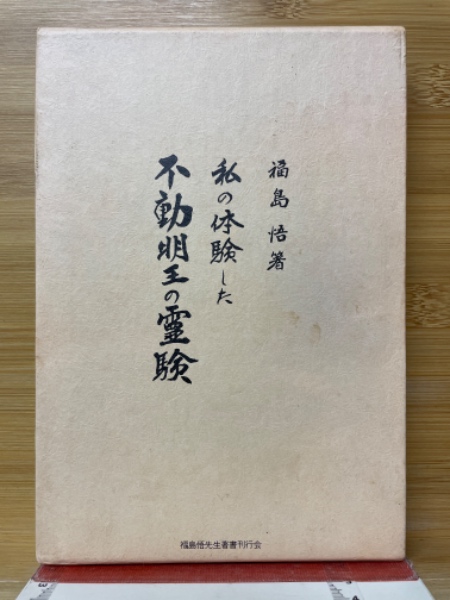 福島悟著
私の体験した
不動明王の霊験
福島悟先生著書刊行会